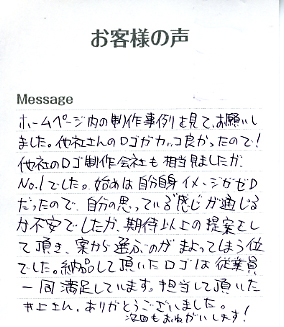 お客様の声
Message
ホームページ内の制作事例を見て、お願いし
ました。他社さんのロゴがカッコ良かったので!
他社のロゴ制作会社も相当見ましたが、
No.1でした。始めは自分自身イメージがゼロ
だったので、自分の思っている感じが通じる
か不安でしたが、期待以上の提案をし
て頂き、案から選ぶのがまよってしまう位
でした。納品して頂いたロゴは従業員
一同満足しています。担当して頂いた
井上さん、ありがとうございました。
次回もおねがいします!